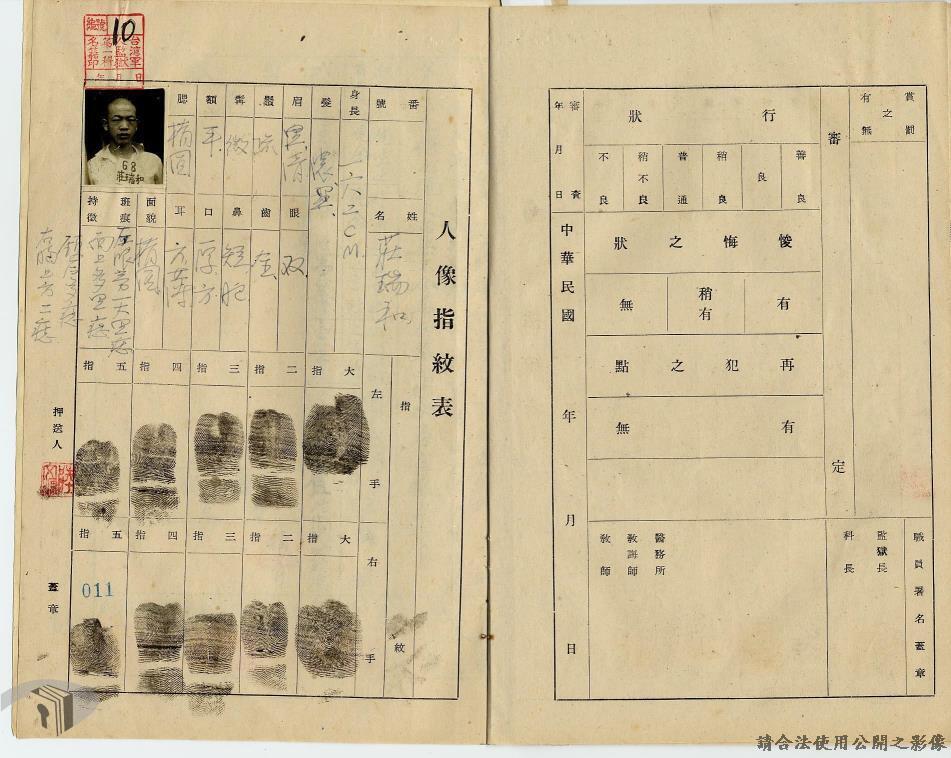 號編
10
台灣軍
監獄
第一科
名籍印
年月日
68
莊瑞和
人像指紋表
番號
姓名 莊瑞和
身長 一六二CM
髮 濃黑
眉 黑清
眼 双
鬚
齒 全
髯 微
鼻 短肥
額 平
口 厚方
腮 橢圓
耳 方薄
面貌 橢圓
斑痕 左眼旁一大黑痣
特徵 面上多黑痣
指紋
左手
大指 二指 三指 四指 五指
右手
大指 二指 三指 四指 五指
011
押送人
蓋章
賞罰之有無
審定
行狀
善良
良
稍良
普通
稍不良
不良
悛悔之狀
有
稍有
無
再犯之點
有
無
審查
年月日
中華民國 年 月 日
職員署名蓋章
監獄長
科長
醫務所
教誨師
教師
請合法使用公開之影像